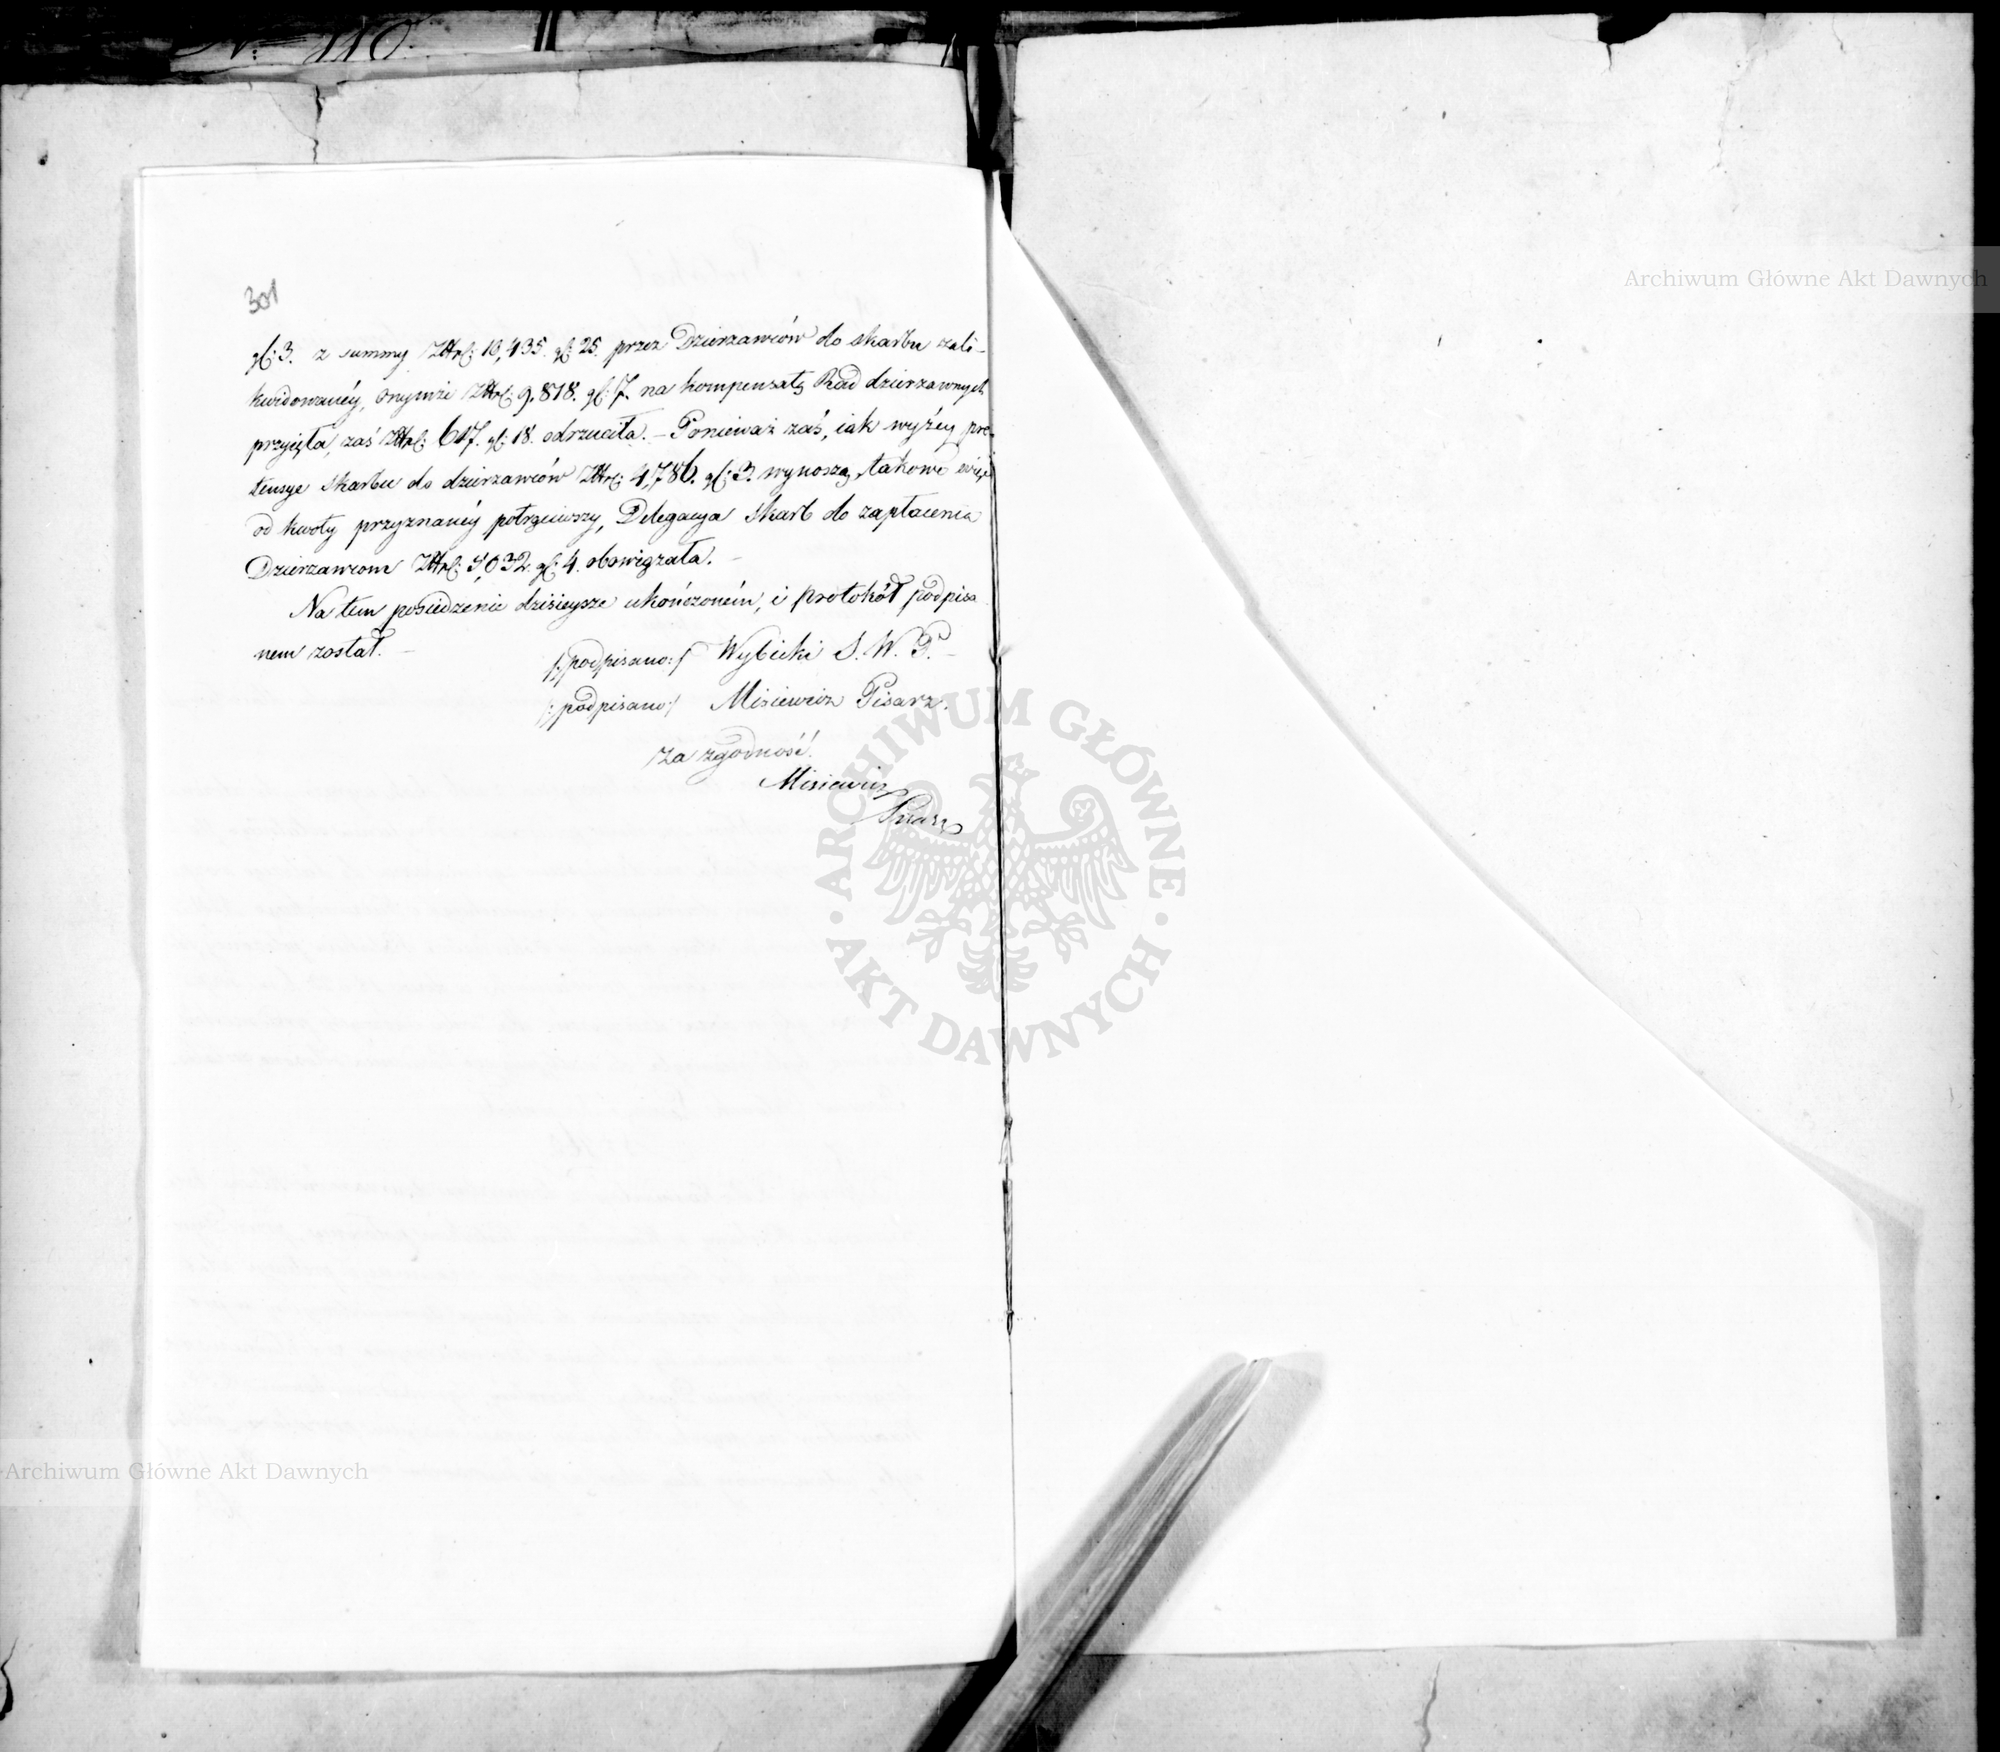 No 110.
301
gl: 3. z summy Złtpl: 10,435. gl: 25. przez Dzierzawców do skarbu zali-
kwidowanéy, onymże Złtpl: 9,818. gl: 7. na kompensatę Rad dzierzawnych
przyięła, zaś Złtpl: 617. gl: 18. odrzuciła. – Ponieważ zaś, iak wyżéy pre-
tensye skarbu do dzierzawców Złtpl: 4,786. gl: 3. wynoszą, takowe więc
od kwoty przyznanéy potrąciwszy, Delegacya Skarb do zapłacenia
Dzierzawcom Złtpl: 5,032. gl: 4. obowiązała. –
Na tem posiedzenie dzisieysze ukończonem, i protokół podpisa
nem został. –
/:podpisano:/ Wybicki S. W. P. –
/:podpisano:/ Misiewicz Pisarz.
Za zgodność.
Misiewicz
Pisarz
Archiwum Główne Akt Dawnych
ARCHIWUM GŁÓWNE · AKT DAWNYCH ·
Archiwum Główne Akt Dawnych